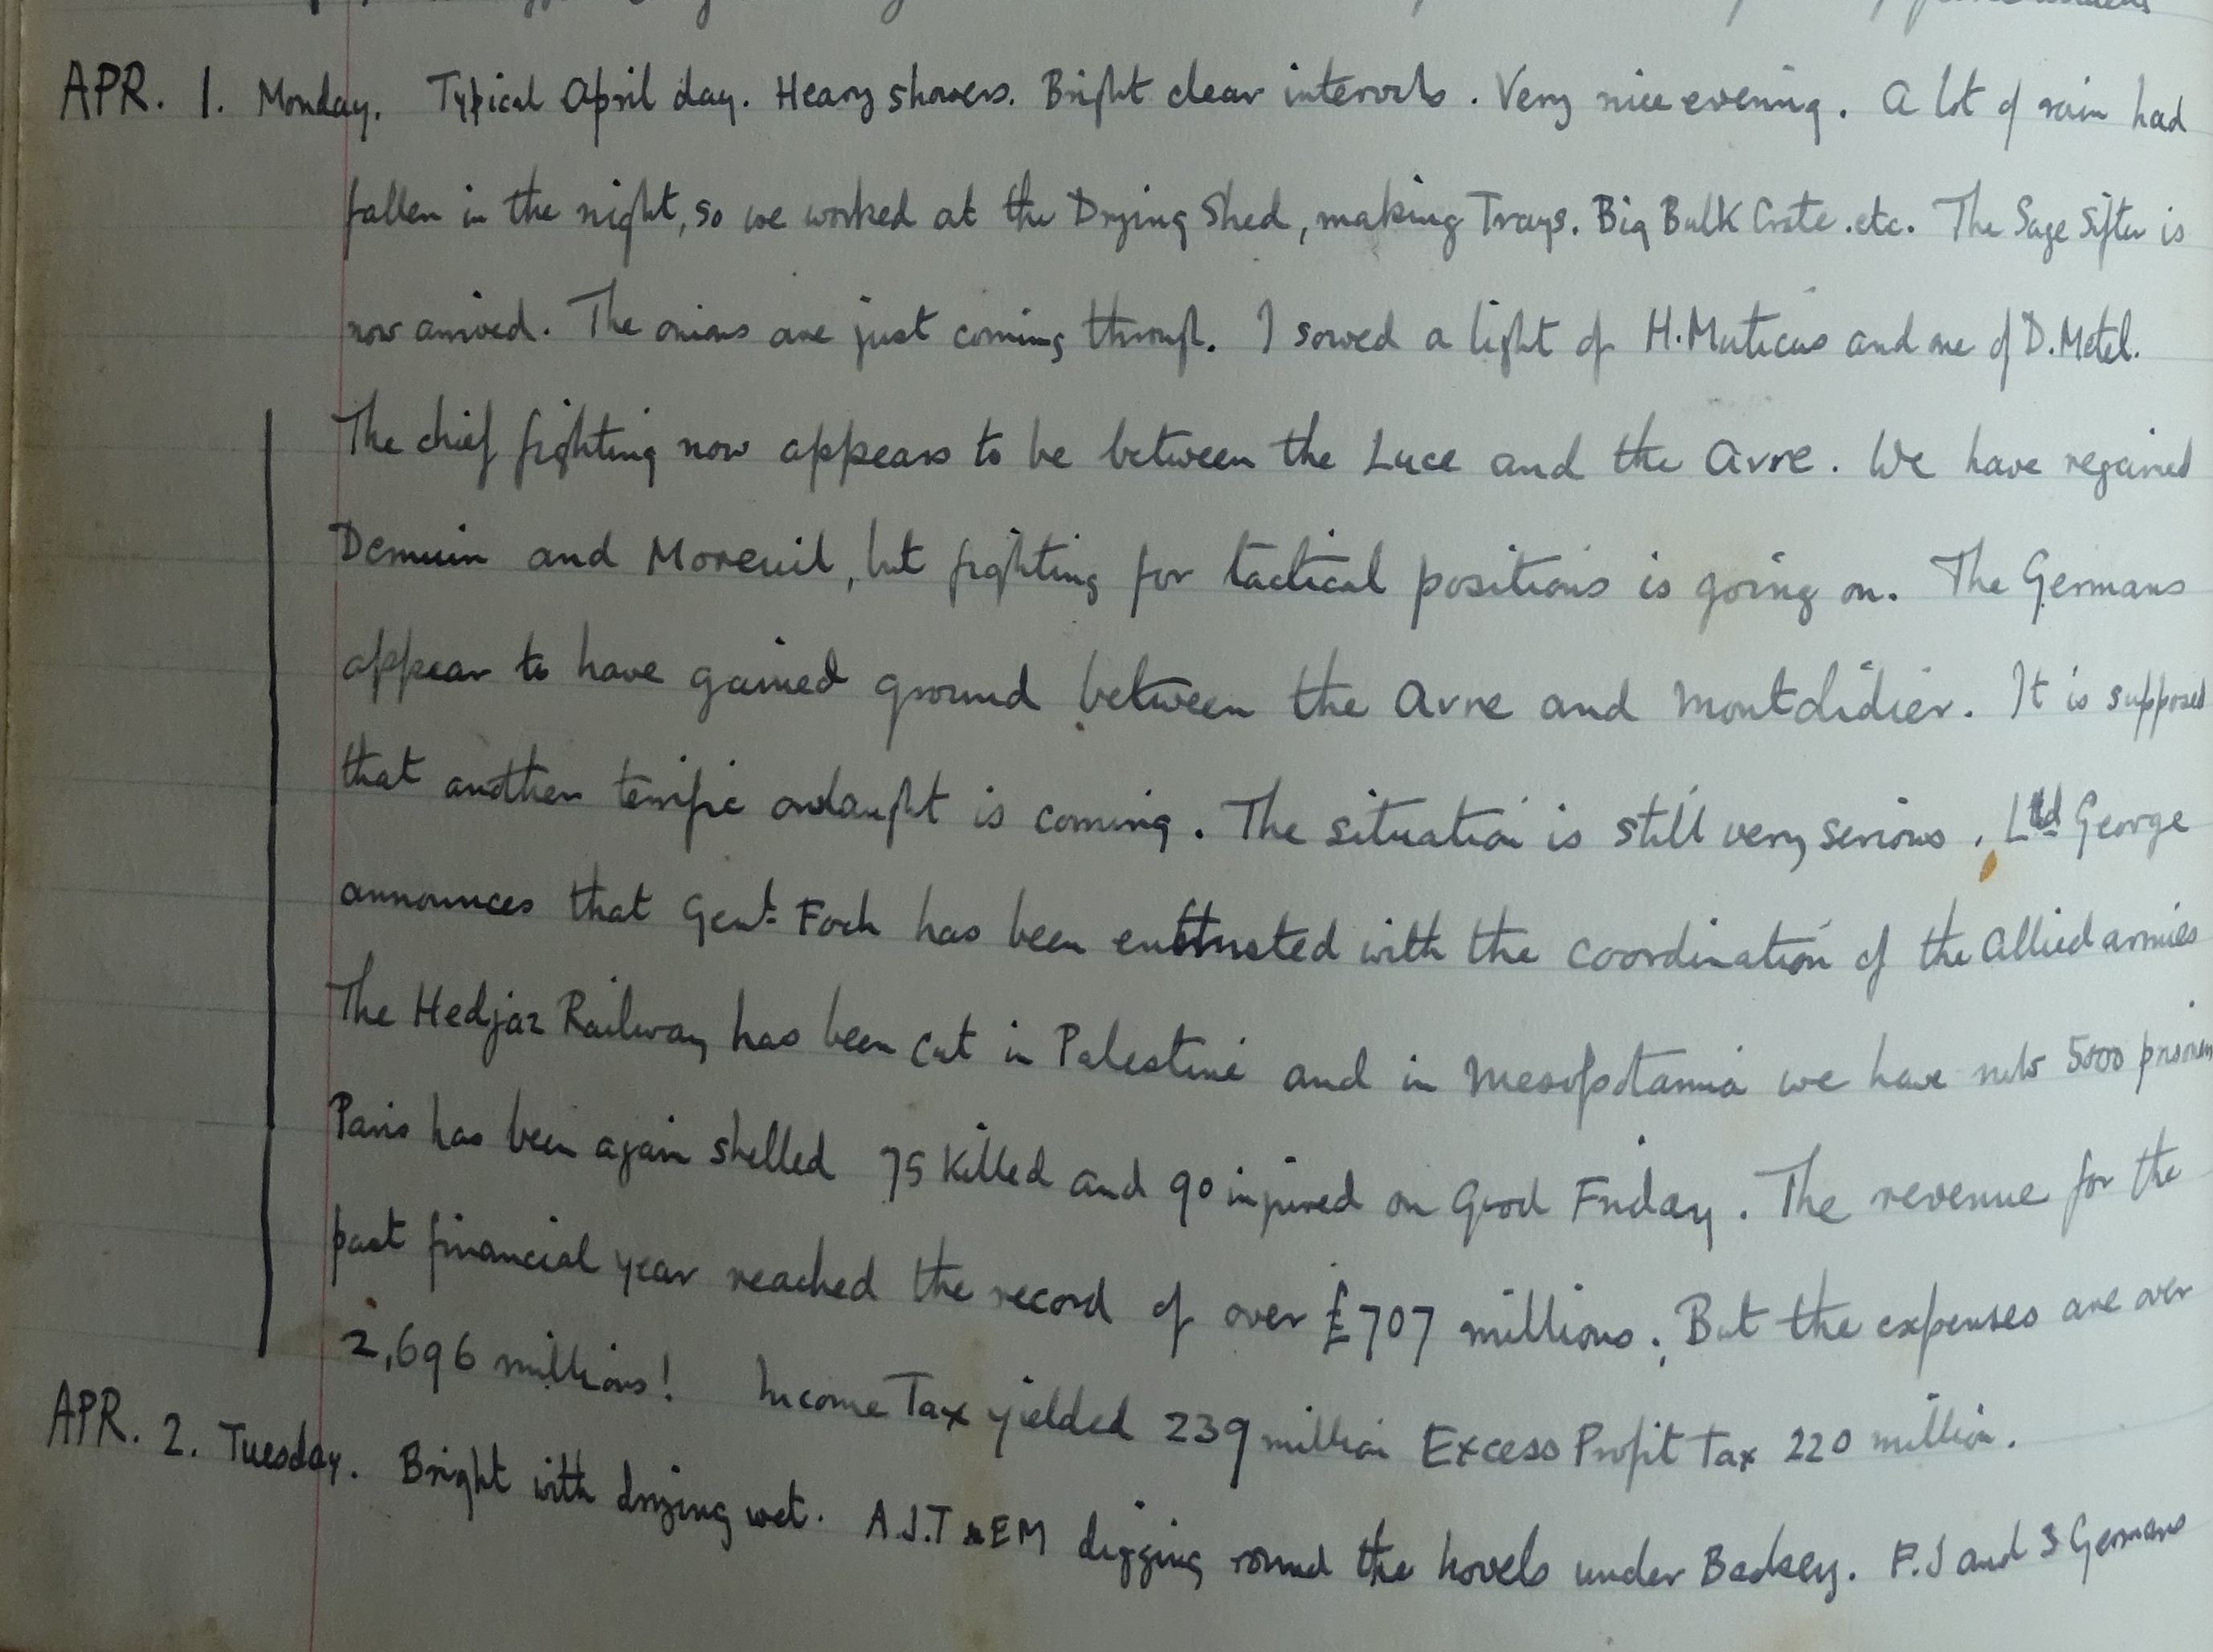 APR. 1. Monday. Typical April day. Heavy showers. Bright clear intervals. Very nice evening. A lot of rain had
fallen in the night, so we worked at the Drying Shed, making Trays. Big Bulk Crate .etc. The Sage Sifter is
now arrived. The onions are just coming through. I sowed a light of H. Muticus and one of D. Metel.
The chief fighting now appears to be between the Luce and the Avre. We have regained
Demuin and Moreuil, but fighting for tactical positions is going on. The Germans
appear to have gained ground between the Avre and Montdidier. It is supposed
that another terrific onslaught is coming. The situation is still very serious. George
announces that Genl. Foch has been entrusted with the coordination of the Allied armies
The Hedjaz Railway has been cut in Palestine and in Mesopotamia we have 5000
Paris has been again shelled 75 killed and 90 injured on Good Friday. The revenue for the
past financial year reached the record of over £707 millions. But the expenses are over
2,696 millions! Income Tax yielded 239 million Excess Profit Tax 220 million.
APR. 2. Tuesday. Bright with drying wet. A.J.T & EM digging round the hovels under Badsey. F.J and 3 Germans